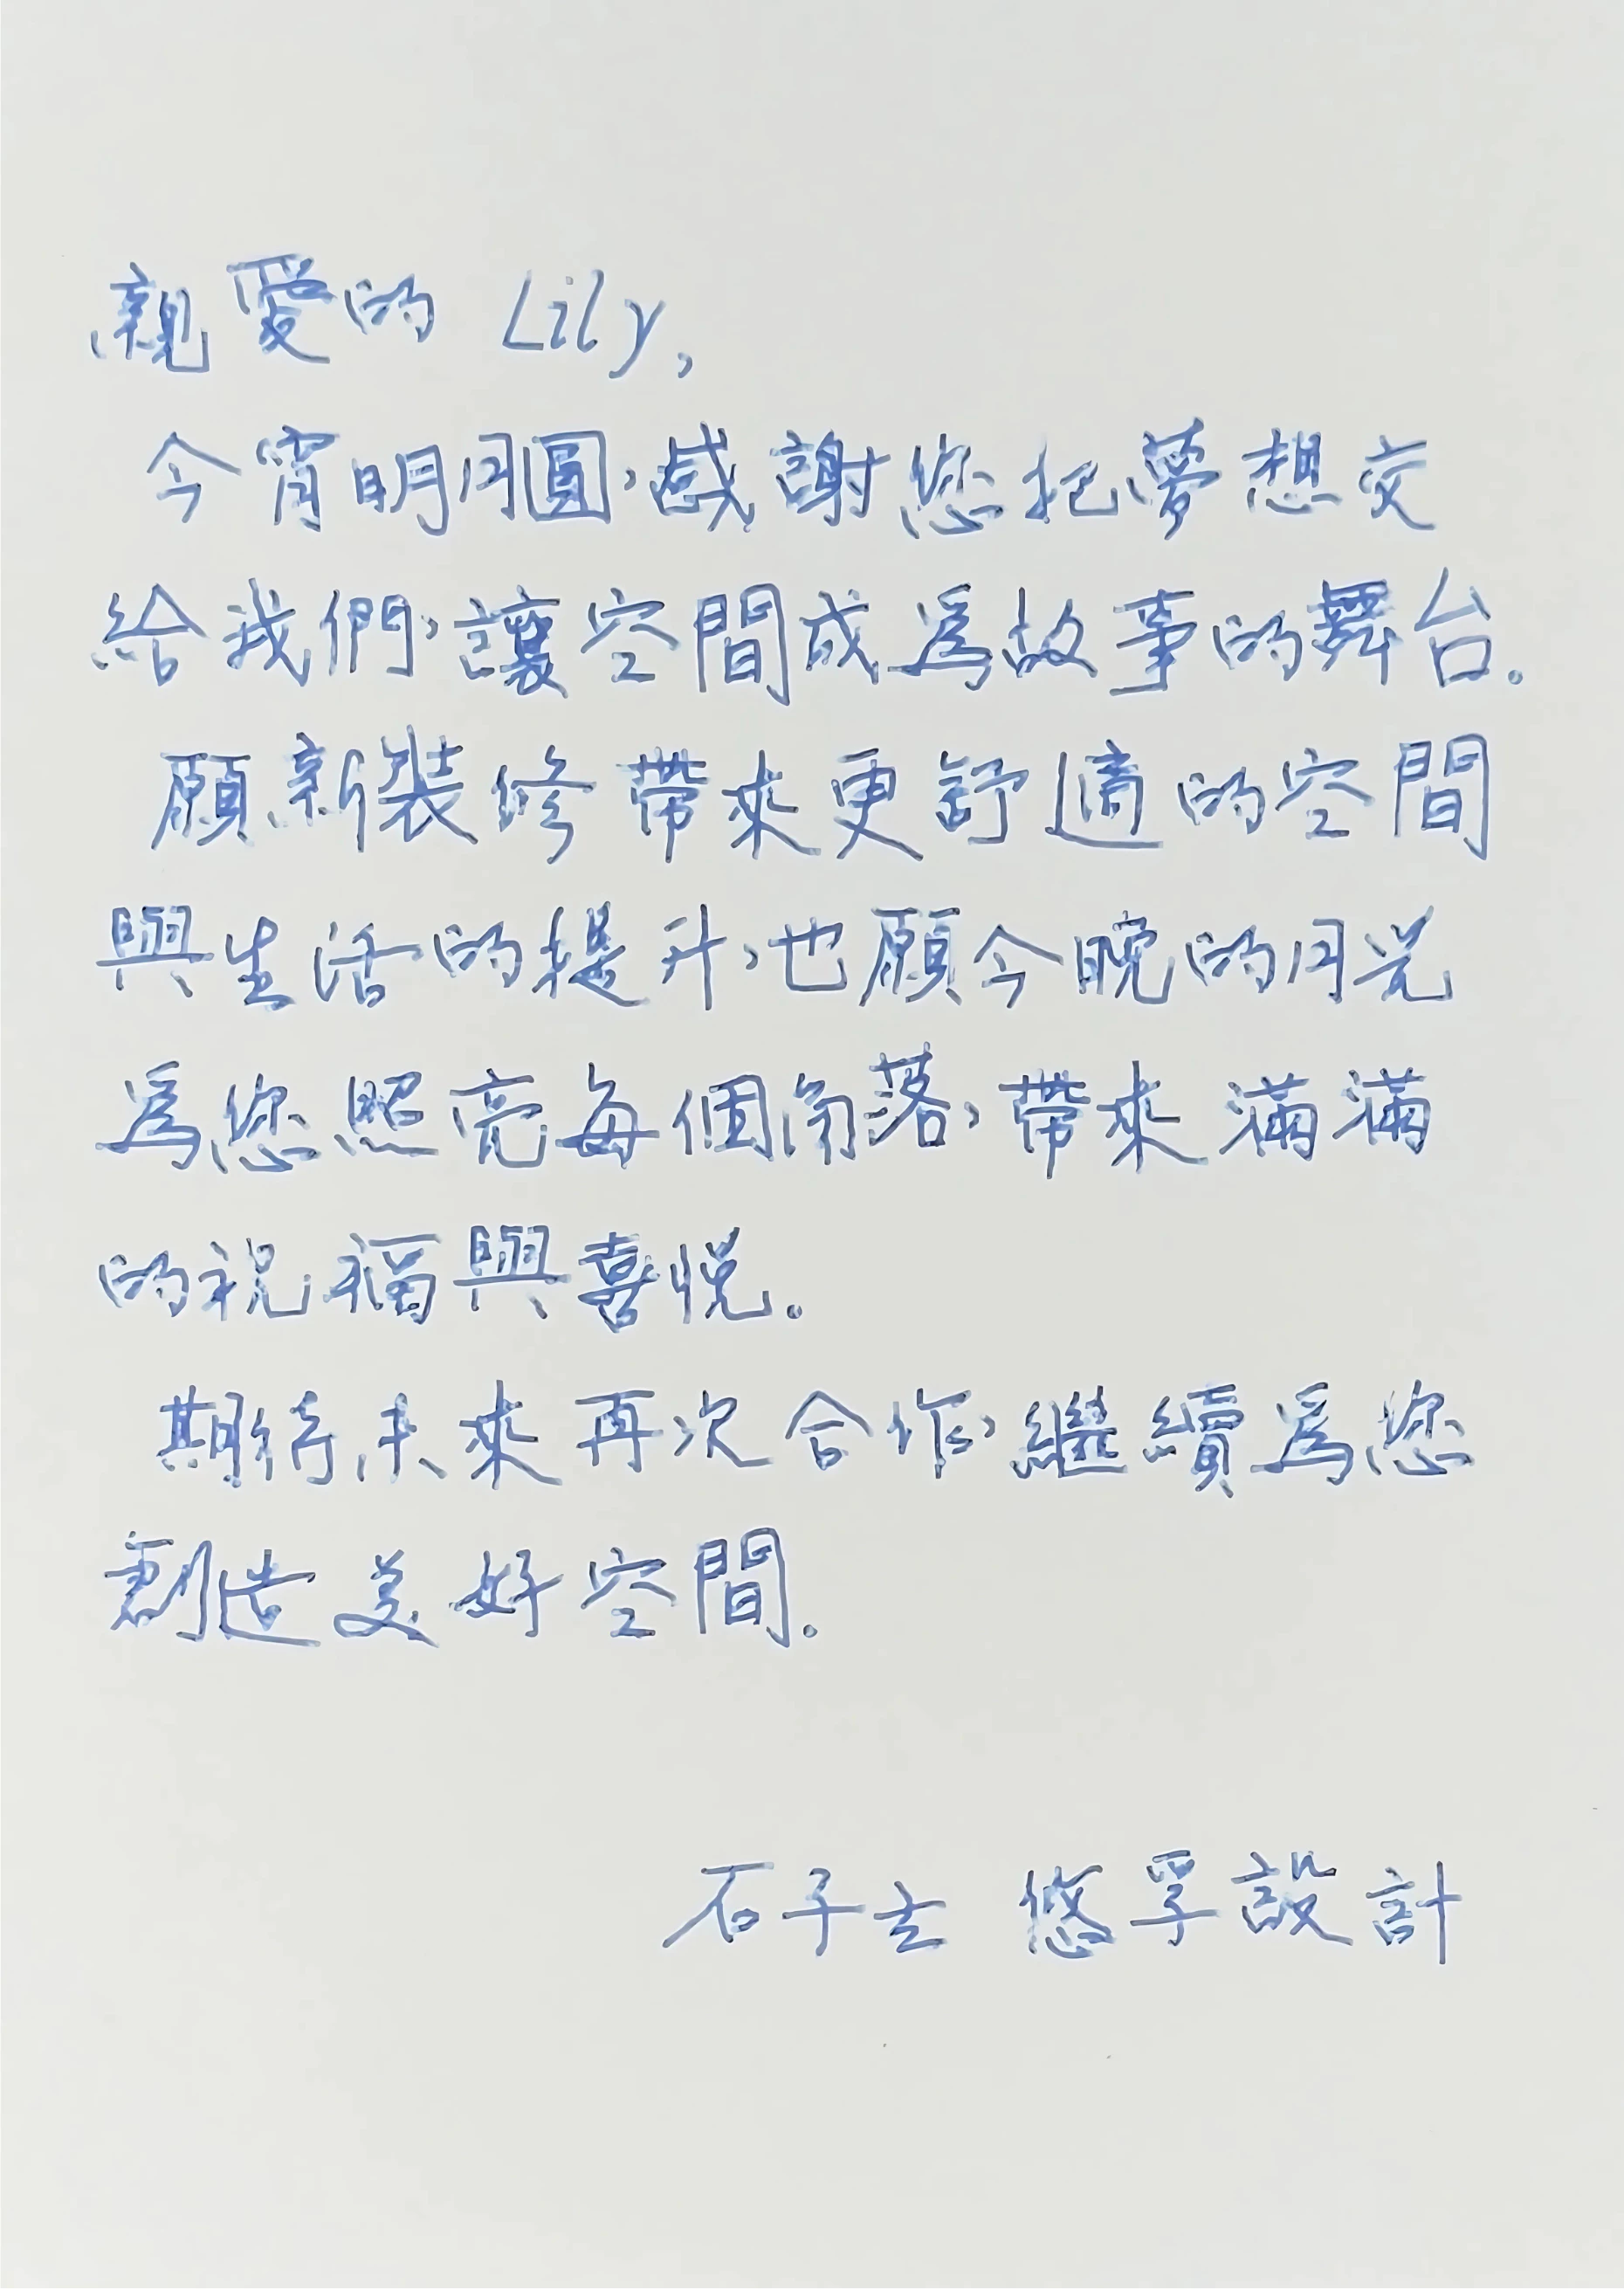 親愛的 Lily,
今宵明月圓,感謝您把夢想交
給我們,讓空間成為故事的舞台。
願新裝修帶來更舒適的空間
與生活的提升,也願今晚的月光
為您照亮每個角落,帶來滿滿
的祝福與喜悅。
期待未來再次合作,繼續為您
創造美好空間。
石子士 悠孚設計